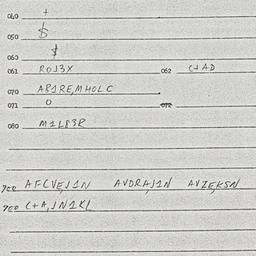 040 +
050 $
060 $
061 ROJ3X 062 C+AD
070 A81RE,MHOLC
071 0 072
080 M1L83R
7E0 AFCVEJ1N AVDRAJ1N AVZEKSN
7E0 C+A,JN1KL